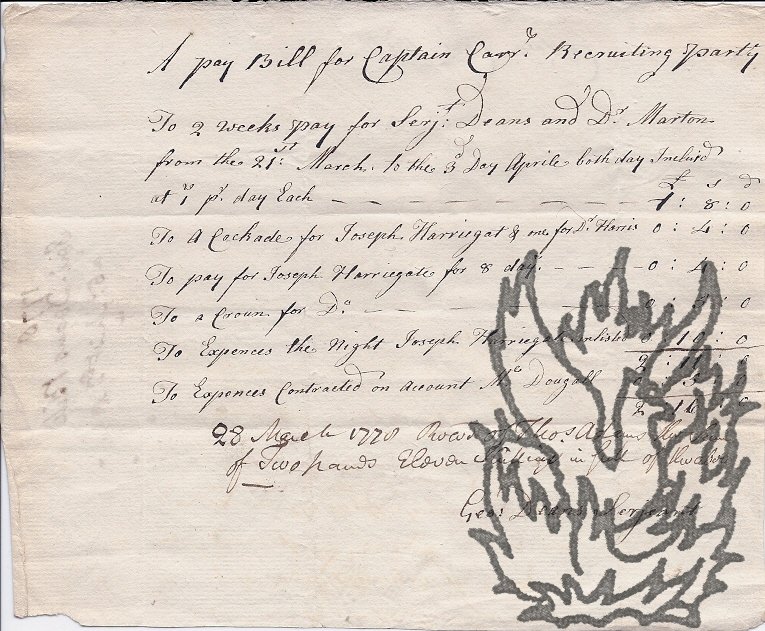 A pay Bill for Captain Carr.s Recruiting party
To 2 weeks pay for Serjt. Deans and Dr. Marton
from the 21st. March. to the 3d Day Aprile both day Includd
£ s d
at 1s pr. day Each 1 : 8 : 0
To A Cockade for Joseph Harriegat & one for Dr. Harris 0 : 4 : 0
To pay for Joseph Harriegate for 8 days. 0 : 4 : 0
To a Croun for Do. 0 : : 0
To Expences the Night Joseph Harriegate inlisted 0 : 10 : 0
2 : 11 : 0
To Expences Contracted on account Mc Dougall
2 : 16
28 March 1778 of Thos.
of Two pounds Eleven in of
Geo: Deans Serjeant